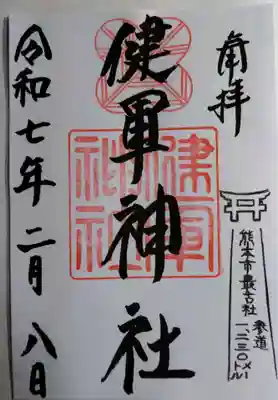 奉拝
健軍神社
健軍
神社
熊本市最古社
参道
一、二三〇メートル
令和七年二月八日